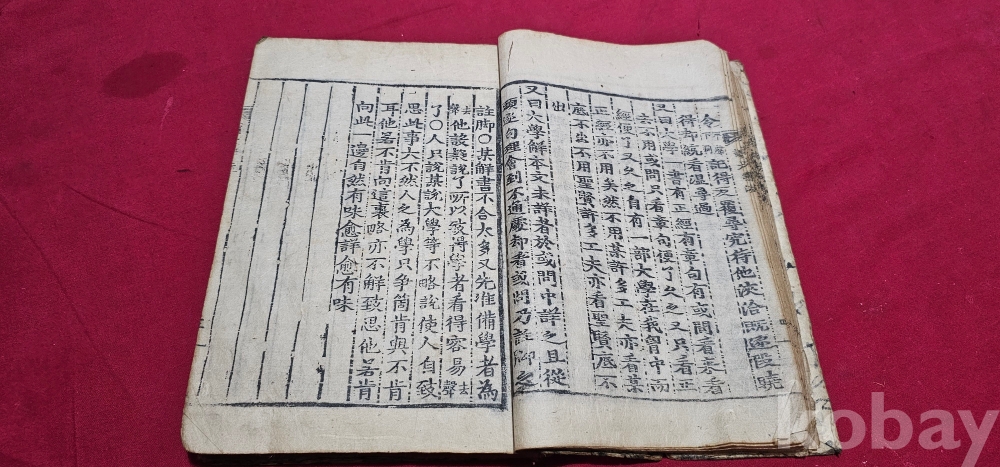 令記得反覆尋究待他浹洽旣逐段曉
得却統看溫尋過
又曰大學一書有正經有章句有或問看來看
去不用或問只看章句便了久之又只看正
經便了又久之自有一部大學在我胷中而
正經亦不用矣然不用某許多工夫亦看某
底不出不用聖賢許多工夫亦看聖賢底不
出
又曰大學解本文未詳者於或問中詳之且從
頭逐句理會到不通處却看或問乃註脚之
註脚○某解書不合太多又先准備學者為
去聲他設疑說了所以致得學者看得容易去聲
了○人只說某說大學等不略說使人自致
思此事大不然人之為學只爭箇肯與不肯
耳他若不肯向這裏略亦不解致思他若肯
向此一邊自然有味愈詳愈有味
kobay